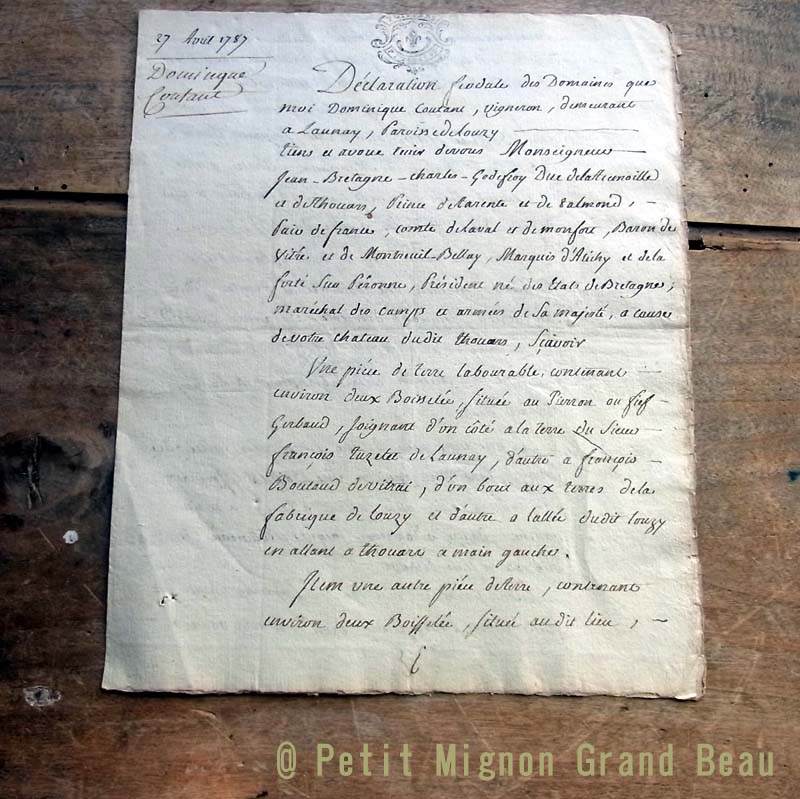 27 Avril 1787
Dominique
Coutant
Déclaration féodale des Domaines que
moi Dominique Coutant, vigneron, demeurant
a Launay, Paroisse de Louzy
tiens et avoue tenir de vous Monseigneur
Jean-Bretagne-Charles-Godefroy Duc de la Tremoille
et de Thouars, Prince de Tarente et de Talmond,
Pair de france, comte de Laval et de monfort, Baron de
Vitré et de Montreuil-Bellay, Marquis d'Attichy et de la
ferté sur Péronne, Président né des Etats de Bretagne,
maréchal des camps et armées de Sa majesté, a cause
de votre chateau dudit thouars, Sçavoir
Une piéce de terre labourable, contenant
environ deux Boisselée, située au Pierron ou fief-
Gerbaud, joignant d'un côté a la terre du Sieur
françois Tuzelet de Launay, d'autre a françois
Boutaud de Vitrai, d'un bout aux terres de la
fabrique de Louzy et d'autre a l'allée dudit Louzy
en allant a thouars a main gauche.
Item une autre piéce de terre, contenant
environ deux Boisselée, située audit lieu,
@ Petit Mignon Grand Beau